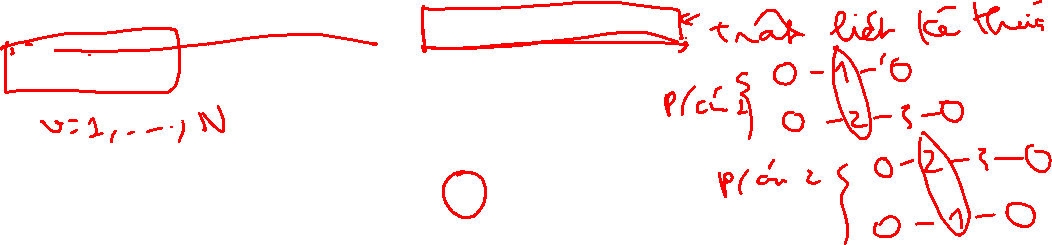 v=1,...., N
trãnh liệt kê
p/án 1
0 - 1 - 0
0 - 2 - 3 - 0
p/án 2
0 - 2 - 3 - 0
0 - 1 - 0